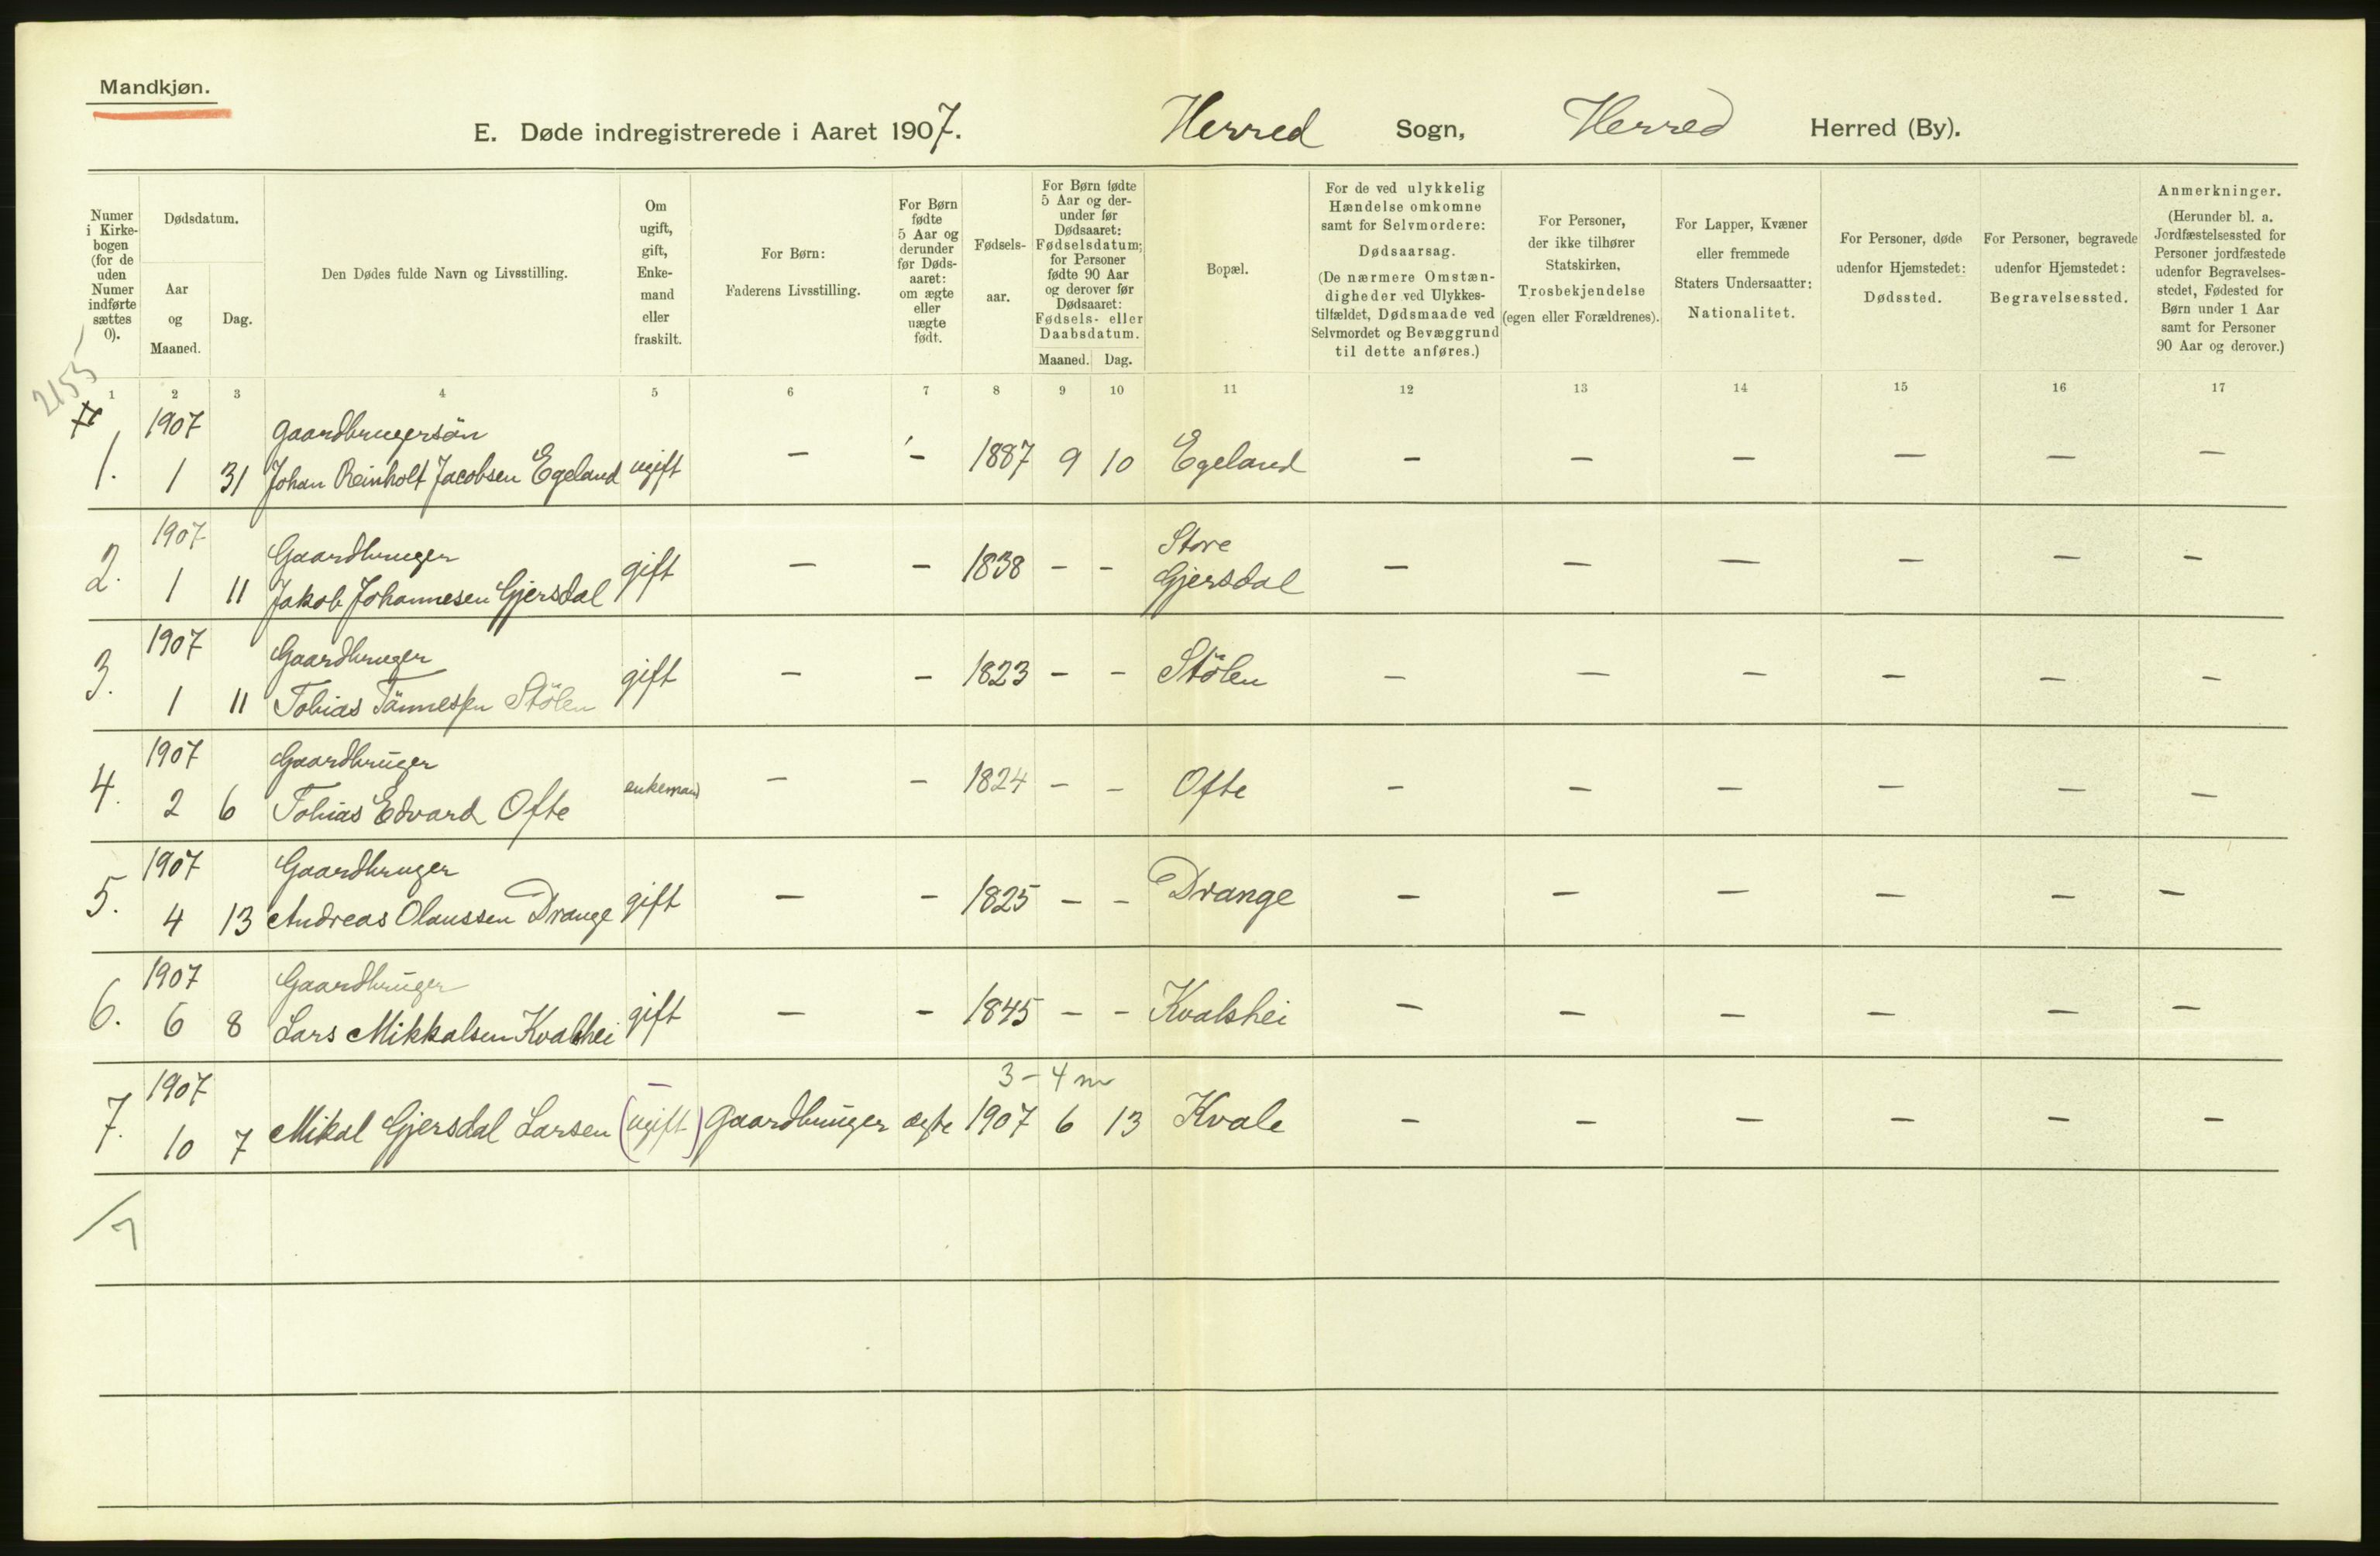 Mandkjøn.
E. Døde indregistrerede i Aaret 1907. Herred Sogn, Herred Herred (By).
Numer i Kirke-bogen (for de uden Numer indførte sættes 0).
Dødsdatum.
Aar og Maaned.
Dag.
Den Dødes fulde Navn og Livsstilling.
Om ugift, gift, Enke-mand eller fraskilt.
For Børn: Faderens Livsstilling.
For Børn fødte 5 Aar og derunder før Døds-aaret: om ægte eller uægte født.
Fødsels-aar.
For Børn fødte 5 Aar og der-under før Dødsaaret: Fødselsdatum; for Personer fødte 90 Aar og derover før Dødsaaret: Fødsels- eller Daabsdatum.
Maaned. Dag.
Bopæl.
For de ved ulykkelig Hændelse omkomne samt for Selvmordere: Dødsaarsag. (De nærmere Omstæn-digheder ved Ulykkes-tilfældet, Dødsmaade ved Selvmordet og Bevæggrund til dette anføres.)
For Personer, der ikke tilhører Statskirken, Trosbekjendelse (egen eller Forældrenes).
For Lapper, Kvæner eller fremmede Staters Undersaatter: Nationalitet.
For Personer, døde udenfor Hjemstedet: Dødssted.
For Personer, begravede udenfor Hjemstedet: Begravelsessted.
Anmerkninger. (Herunder bl. a. Jordfæstelsessted for Personer jordfæstede udenfor Begravelses-stedet, Fødested for Børn under 1 Aar samt for Personer 90 Aar og derover.)
2155
1 2 3 4 5 6 7 8 9 10 11 12 13 14 15 16 17
1907 Gaardbrugersön
1. 1 31 Johan Reinholt Jacobsen Egeland ugift – – 1887 9 10 Egeland – – – – – –
1907 Gaardbruger Store
2. 1 11 Jakob Johannesen Gjersdal gift – – 1838 – – Gjersdal – – – – – –
1907 Gaardbruger
3. 1 11 Tobias Tönnessen Stölen gift – – 1823 – – Stölen – – – – – –
1907 Gaardbruger
4. 2 6 Tobias Edvard Ofte enkemand – – 1824 – – Ofte – – – – – –
1907 Gaardbruger
5. 4 13 Andreas Olaussen Drange gift – – 1825 – – Drange – – – – – –
1907 Gaardbruger
6. 6 8 Lars Mikkalsen Kvalshei gift – – 1845 – – Kvalshei – – – – – –
1907 – 3 – 4 m
7. 10 7 Mikal Gjersdal Larsen (ugift) Gaardbruger ægte 1907 6 13 Kvale – – – – – –
7